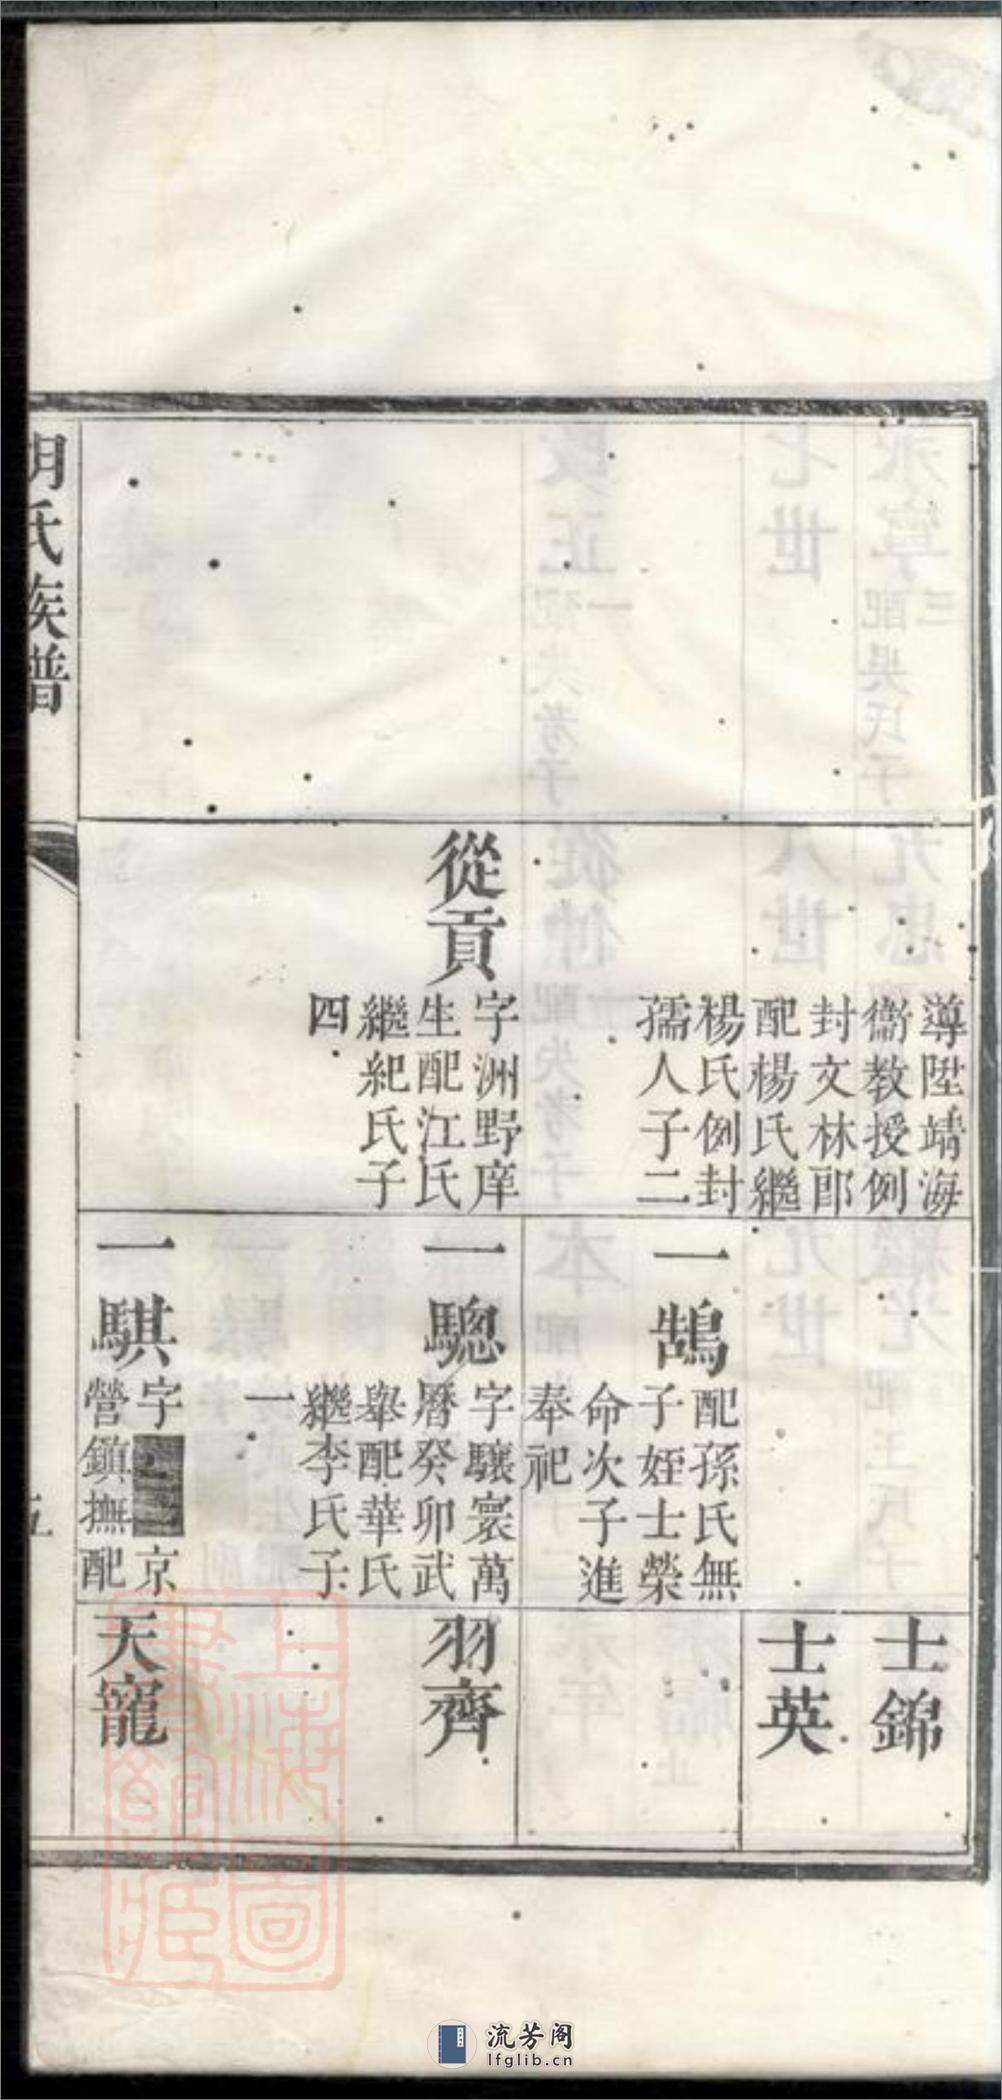 導陞靖海
衞教授例
封文林郎
配楊氏繼
楊氏例封
孺人子二
從貢
字洲野庠
生配江氏
繼紀氏子
四
一鵠
配孫氏無
子姪士榮
命次子進
奉祀
一驄
字驤寰萬
曆癸卯武
舉配華氏
繼李氏子
一
一騏
字
京
營鎮撫配
士錦
士英
羽齊
天寵
胡氏族譜
五
上海圖書館藏
流芳阁
lfglib.cn